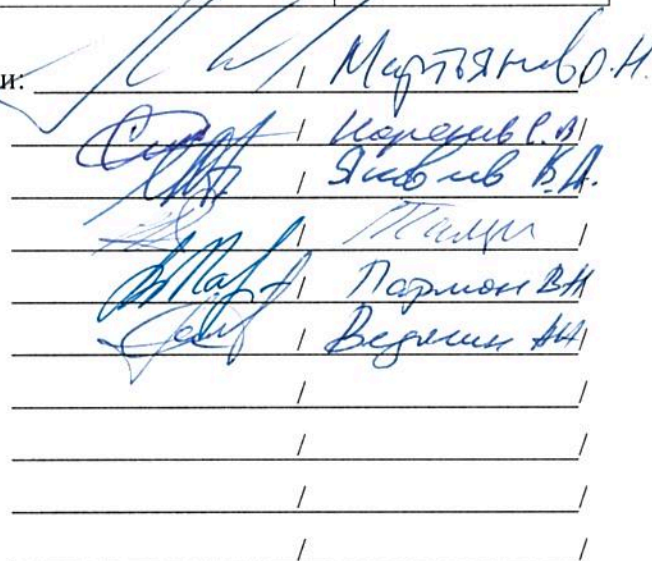 и: / Мартьянов О.Н.
/ С.В. /
/ Яковлев В.А.
/ /
/ Пармон ВН /
/ Ведягин АА /
/ /
/ /
/ /
/ /